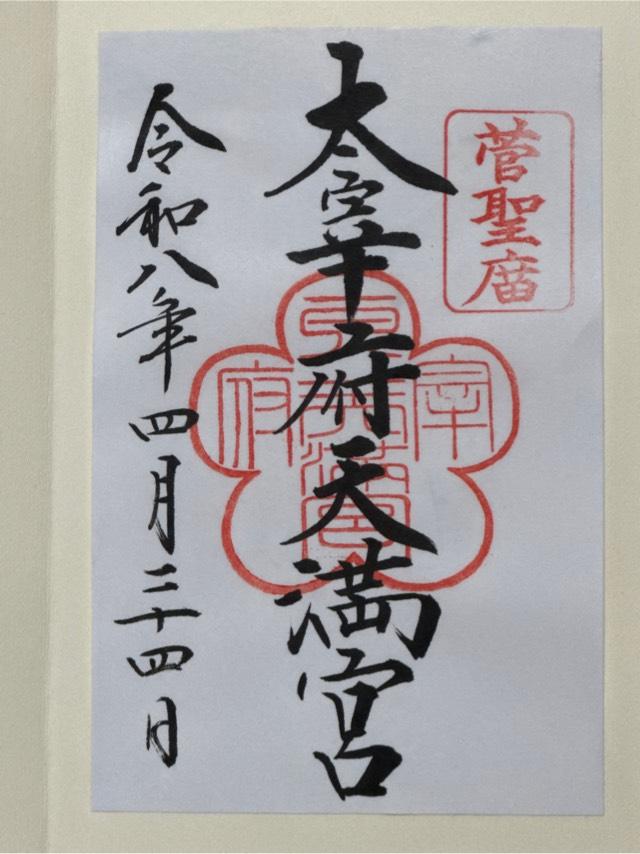 菅聖庿
太宰府天満宮
令和八年四月二十四日